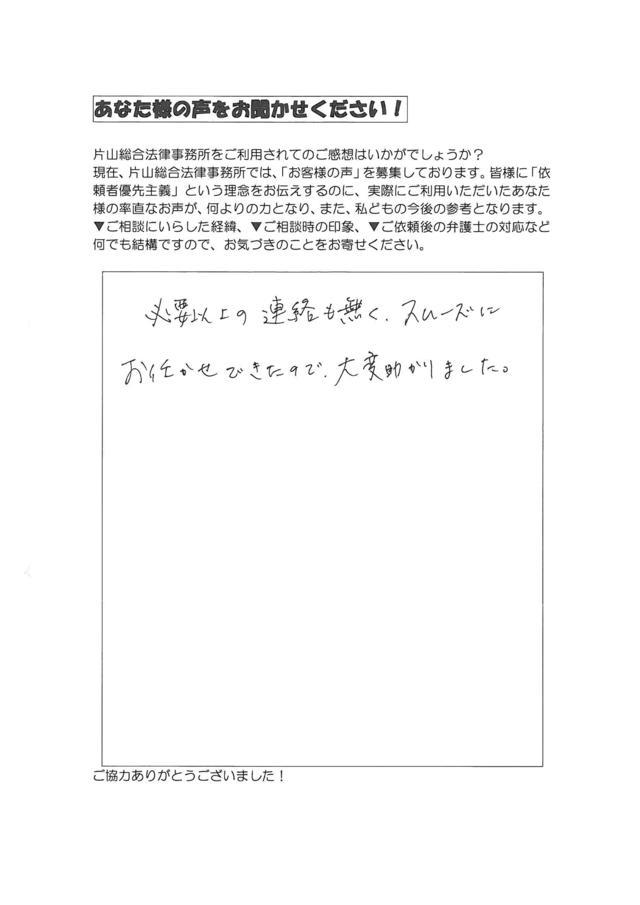 あなた様の声をお聞かせください！
片山総合法律事務所をご利用されてのご感想はいかがでしょうか？
現在、片山総合法律事務所では、「お客様の声」を募集しております。皆様に「依
頼者優先主義」という理念をお伝えするのに、実際にご利用いただいたあなた
様の率直なお声が、何よりの力となり、また、私どもの今後の参考となります。
▼ご相談にいらした経緯、▼ご相談時の印象、▼ご依頼後の弁護士の対応など
何でも結構ですので、お気づきのことをお寄せください。
必要以上の連絡も無く、スムーズに
お任かせできたので、大変助かりました。
ご協力ありがとうございました！